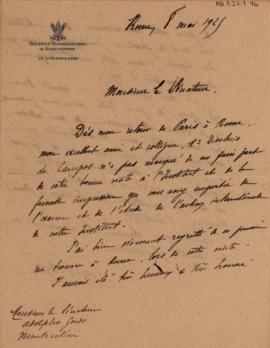 Rome, 8 mai 1925
INSTITUT INTERNATIONAL
D'AGRICULTURE
Monsieur le Sénateur
Dès mon retour de Paris à Rome,
mon excellent ami et collègue, Mr
de Campos n'a pas manqué de me faire part
de votre bonne visite à l'Institut et de la
impression que vous avez emportée de
l'examen et de l'étude de l'action internationale
de notre Institut.
J'ai bien vivement regretté de ne pouvoir
me trouver à Rome, lors de votre visite.
J'aurais été très heureux et très honoré
Monsieur le Sénateur
Adolpho Gordo